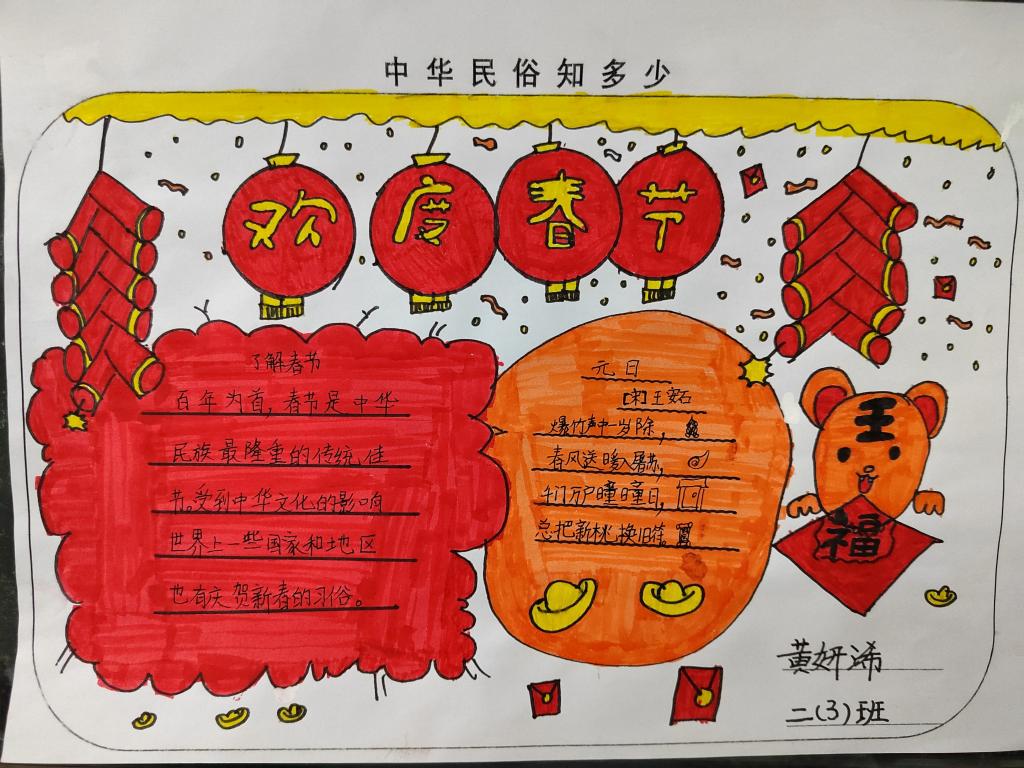 中华民俗知多少
欢度春节
了解春节
百年为首，春节是中华
民族最隆重的传统佳
节。受到中华文化的影响
世界上一些国家和地区
也有庆贺新春的习俗。
元日
[宋]王安石
爆竹声中一岁除，
春风送暖入屠苏，
千门万户曈曈日，
总把新桃换旧符。
王
福
黄妍浠
二(3)班